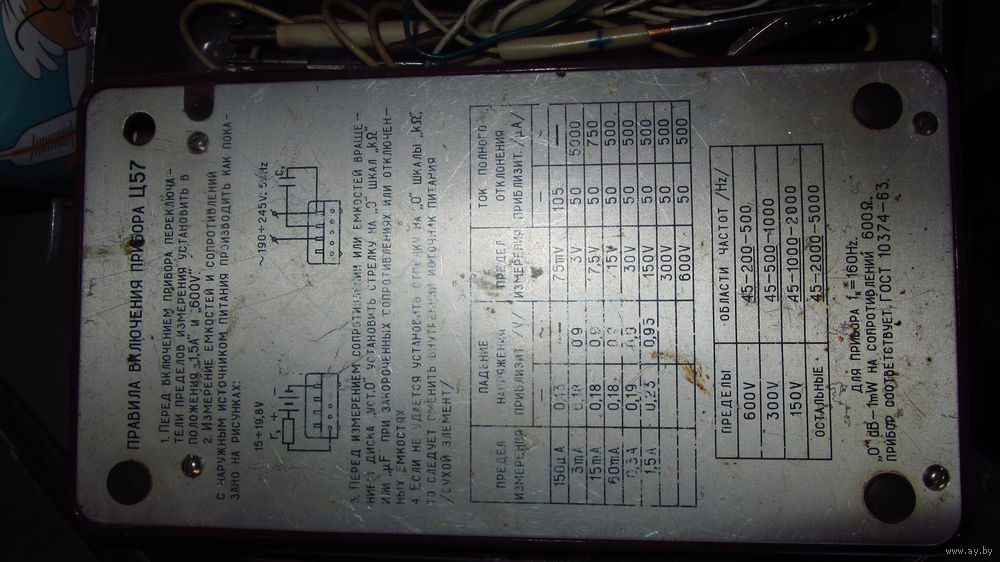 ПРАВИЛА ВКЛЮЧЕНИЯ ПРИБОРА Ц57
1. ПЕРЕД ВКЛЮЧЕНИЕМ ПРИБОРА ПЕРЕКЛЮЧА-
ТЕЛИ ПРЕДЕЛОВ ИЗМЕРЕНИЯ УСТАНОВИТЬ В
ПОЛОЖЕНИЯ „1,5A" И „600V".
2. ИЗМЕРЕНИЕ ЕМКОСТЕЙ И СОПРОТИВЛЕНИЙ
С НАРУЖНЫМ ИСТОЧНИКОМ ПИТАНИЯ ПРОИЗВОДИТЬ КАК ПОКА-
ЗАНО НА РИСУНКАХ:
15÷19,8V ~190÷245V. 50Hz
rx + − Cx
3. ПЕРЕД ИЗМЕРЕНИЕМ СОПРОТИВЛЕНИЙ ИЛИ ЕМКОСТЕЙ ВРАЩЕ-
НИЕМ ДИСКА „УСТ.О" УСТАНОВИТЬ СТРЕЛКУ НА „О" ШКАЛ „kΩ"
ИЛИ „μF" ПРИ ЗАКОРОЧЕННЫХ СОПРОТИВЛЕНИЯХ ИЛИ ОТКЛЮЧЕН-
НЫХ ЕМКОСТЯХ
4. ЕСЛИ НЕ УДАЕТСЯ УСТАНОВИТЬ СТРЕЛКУ НА „О" ШКАЛЫ „kΩ",
ТО СЛЕДУЕТ СМЕНИТЬ ВНУТРЕННИЙ ИСТОЧНИК ПИТАНИЯ
/СУХОЙ ЭЛЕМЕНТ/
ПРЕДЕЛ ПАДЕНИЕ ПРЕДЕЛ ТОК ПОЛНОГО
ИЗМЕРЕНИЯ НАПРЯЖЕНИЯ ИЗМЕРЕНИЯ ОТКЛОНЕНИЯ
ПРИБЛИЗИТ. /V/ ПРИБЛИЗИТ. /μA/
− ~ − ~
150μA 0,13 — 75mV 105 —
3mA 0,18 0,9 3V 50 5000
15mA 0,18 0,9 7,5V 50 750
60mA 0,18 0,9 15V 50 500
0,3A 0,19 0,9 30V 50 500
1,5A 0,23 0,95 150V 50 500
300V 50 500
600V 50 500
ПРЕДЕЛЫ ОБЛАСТИ ЧАСТОТ /Hz/
600V 45-200-500
300V 45-500-1000
150V 45-1000-2000
ОСТАЛЬНЫЕ 45-2000-5000
ДЛЯ ПРИБОРА fк=160Hz.
„О" dB — 1mW НА СОПРОТИВЛЕНИЙ 600Ω.
ПРИБОР СООТВЕТСТВУЕТ ГОСТ 10374-63.
www.ay.by